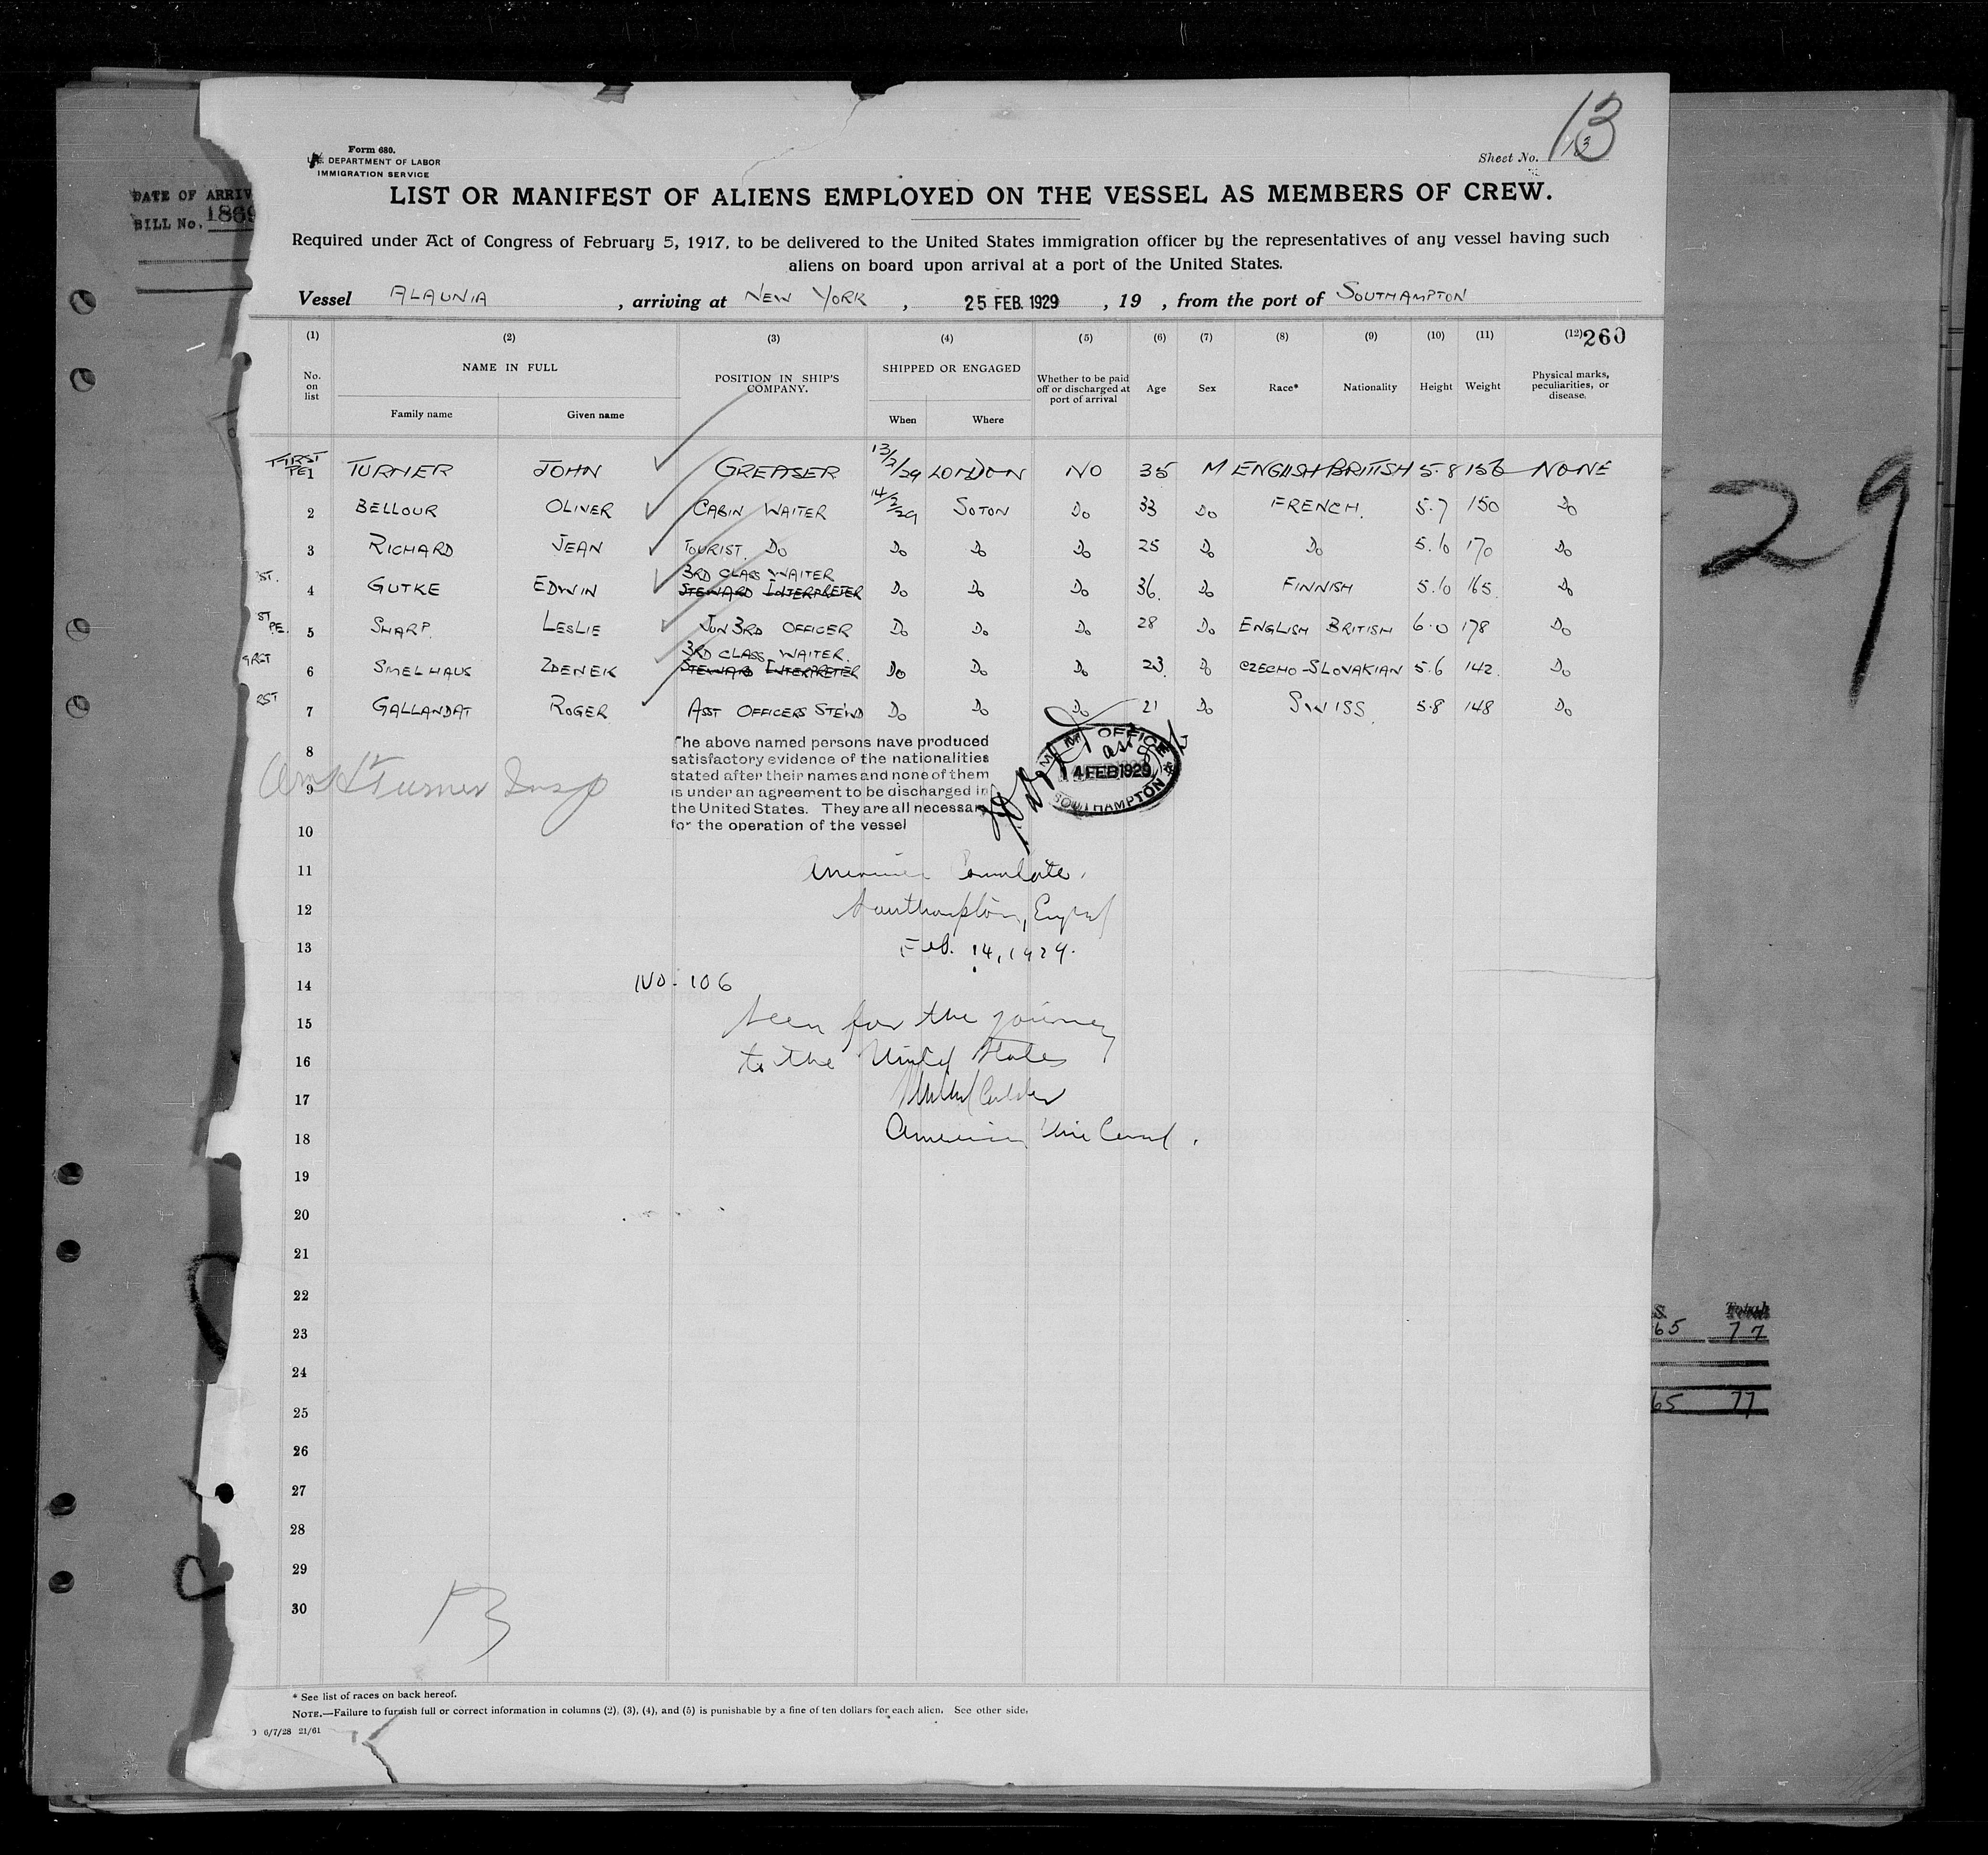 13
Form 680.
U.S. DEPARTMENT OF LABOR
IMMIGRATION SERVICE
Sheet No. 13
DATE OF ARRIV
BILL No. 1869
LIST OR MANIFEST OF ALIENS EMPLOYED ON THE VESSEL AS MEMBERS OF CREW.
Required under Act of Congress of February 5, 1917, to be delivered to the United States immigration officer by the representatives of any vessel having such
aliens on board upon arrival at a port of the United States.
Vessel ALAUNIA, arriving at NEW YORK, 25 FEB. 1929, 19 , from the port of SOUTHAMPTON
(1) (2) (3) (4) (5) (6) (7) (8) (9) (10) (11) (12) 260
No. on list NAME IN FULL Family name Given name POSITION IN SHIP'S COMPANY. SHIPPED OR ENGAGED When Where Whether to be paid off or discharged at port of arrival Age Sex Race* Nationality Height Weight Physical marks, peculiarities, or disease.
FIRST PE 1 TURNER JOHN GREASER 13/2/29 LONDON NO 35 M ENGLISH BRITISH 5.8 156 NONE
2 BELLOUR OLIVER CABIN WAITER 14/2/29 SOTON Do 33 Do FRENCH. 5.7 150 Do
3 RICHARD JEAN TOURIST. Do Do Do Do 25 Do Do 5.10 170 Do
3RD CLASS WAITER
ST. 4 GUTKE EDWIN STEWARD INTERPRETER Do Do Do 36. Do FINNISH 5.10 165. Do
ST PE. 5 SHARP. LESLIE JUN 3RD OFFICER Do Do Do 28 Do ENGLISH BRITISH 6.0 178 Do
3RD CLASS WAITER.
6 SMELHAUS ZDENEK STEWARD INTERPRETER Do Do Do 23. Do CZECHO-SLOVAKIAN 5.6 142. Do
7 GALLANDAT ROGER ASST OFFICERS STEWD Do Do Do 21 Do SWISS 5.8 148 Do
The above named persons have produced
satisfactory evidence of the nationalities
stated after their names and none of them
is under an agreement to be discharged in
the United States. They are all necessary
for the operation of the vessel
M.M. OFFICE
4 FEB 1929
SOUTHAMPTON
Turner Insp
8
9
10
11 American Consulate,
12 Southampton, England
13 Feb. 14, 1929.
14 No. 106
15 Seen for the journey
16 to the United States
17
18 American Vice Consul.
19
20
21
22
23
24
25
26
27
28
29
30
13
* See list of races on back hereof.
NOTE.—Failure to furnish full or correct information in columns (2), (3), (4), and (5) is punishable by a fine of ten dollars for each alien. See other side.
6/7/28 21/61
29
S Total
65 77
65 77